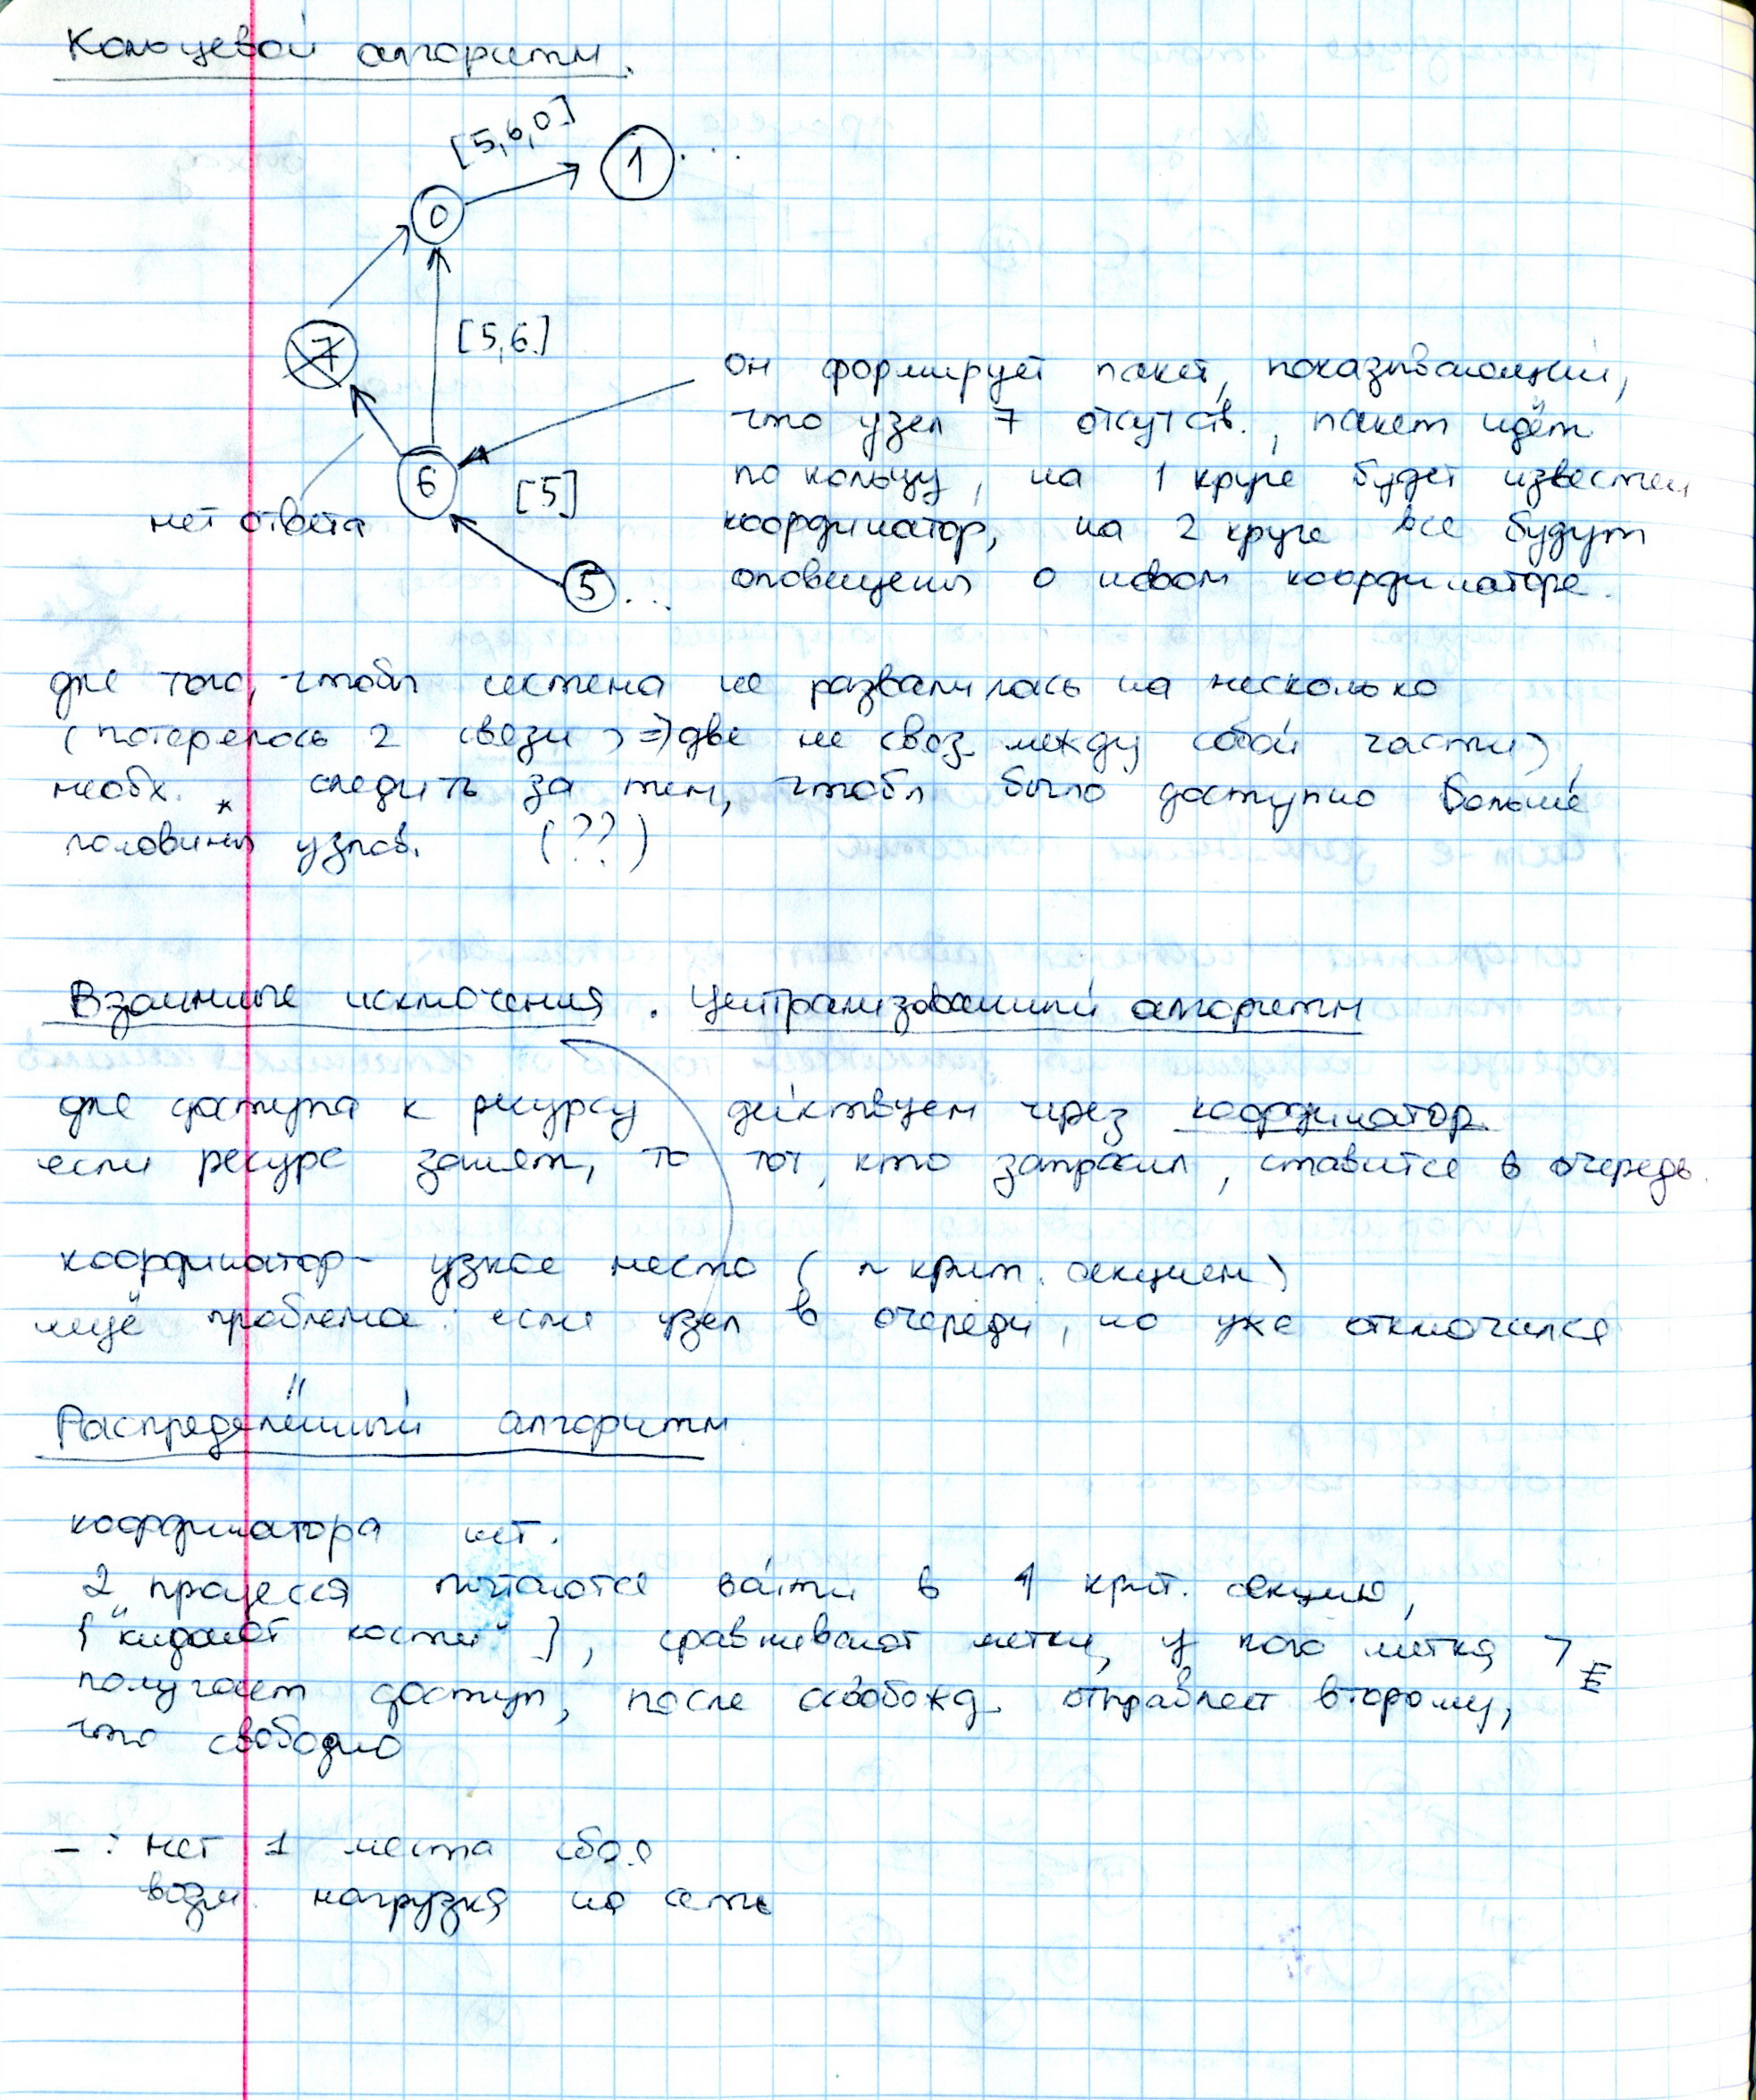 Кольцевой алгоритм.
[5,6,0]
1 ...
0
7
[5,6]
он формирует пакет, показывающий,
что узел 7 отсутств., пакет идёт
6
[5]
по кольцу, на 1 круге будет известен
нет ответа
координатор, на 2 круге все будут
5 ...
оповещены о новом координаторе.
для того, чтобы система не развалилась на несколько
(потерялось 2 связи => две не связ. между собой части),
необх. * следить за тем, чтобы было доступно больше
половины узлов. (??)
Взаимные исключения. Централизованный алгоритм
для доступа к ресурсу действуем через координатор.
если ресурс занят, то тот, кто запросил, ставится в очередь.
координатор - узкое место (~ крит. секциям)
ещё проблема: если узел в очереди, но уже отключился
Распределённый алгоритм
координатора нет.
2 процесса пытаются войти в 1 крит. секцию,
{"кидают кости"}, сравнивают метки, у кого метка >
получает доступ, после освобожд. отправляет второму,
что свободно
- : нет 1 места сбоя
возм. нагрузка на сеть